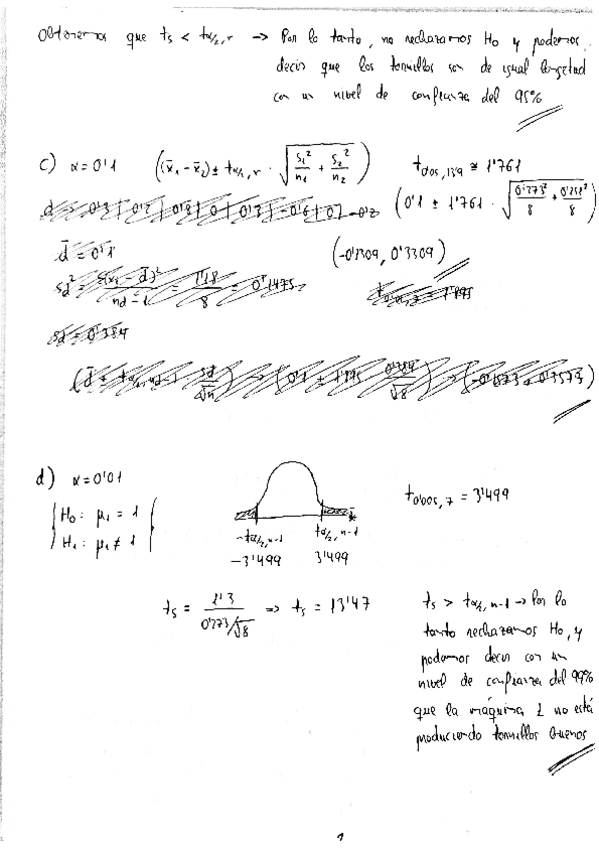 Obtenemos que ts < tα/2,r → Por lo tanto, no rechazamos Ho y podemos
decir que los tornillos son de igual longitud
con un nivel de confianza del 95%
c) α=0'1 ((x̄1 - x̄2) ± tα/2,r · √(S1²/n1 + S2²/n2)) t0'05,13'9 ≅ 1'761
(0'1 ± 1'761 · √(0'273²/8 + 0'251²/8))
d̄ = 0'1 (-0'1309, 0'3309)
Sd² = Σ(xi - d̄)²/nd-1 = 1'18/8 = 0'1475
Sd = 0'384
(d̄ ± tα/2,nd-1 Sd/√n) → (0'1 ± 1'895 0'384/√8) → (-0'1573, 0'3573)
d) α=0'01
t0'005,7 = 3'499
{ H0: μ1 = 1
H1: μ1 ≠ 1 }
-tα/2,n-1 tα/2,n-1
-3'499 3'499
ts = 1'3/(0'273/√8) => ts = 13'47
ts > tα/2,n-1 → Por lo
tanto rechazamos Ho, y
podemos decir con un
nivel de confianza del 99%
que la máquina 1 no está
produciendo tornillos buenos